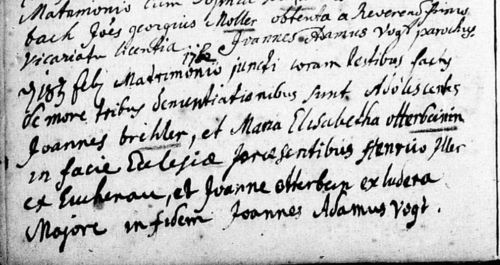 Matrimonio cum
bach Joes georgius Moller obtenta a Reverendissimo
Vicariatu licentia Joannes Adamus Vogt parochus
1762
18 feb Matrimonio juncti coram testibus factis
de more tribus denuntiationibus sunt Adolescentes
Joannes brähler, et Maria Elisabetha otterbeinin
in facie Ecclesiæ præsentibus Henrico Iller
ex Euchenau, et Joanne otterbein ex ludera
Majore in fidem Joannes Adamus Vogt.